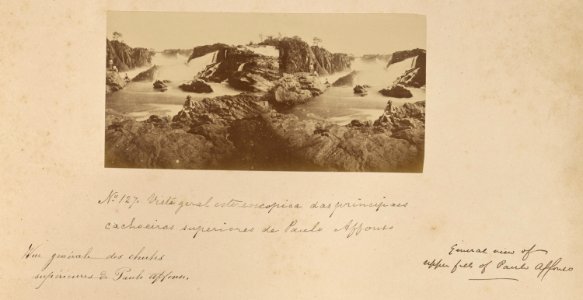 No 127. Vista geral estereoscopica das principaes
cachoeiras superiores de Paulo Affonso
Vue générale des chutes
supérieures de Paulo Affonso.
General view of
upper falls of Paulo Affonso